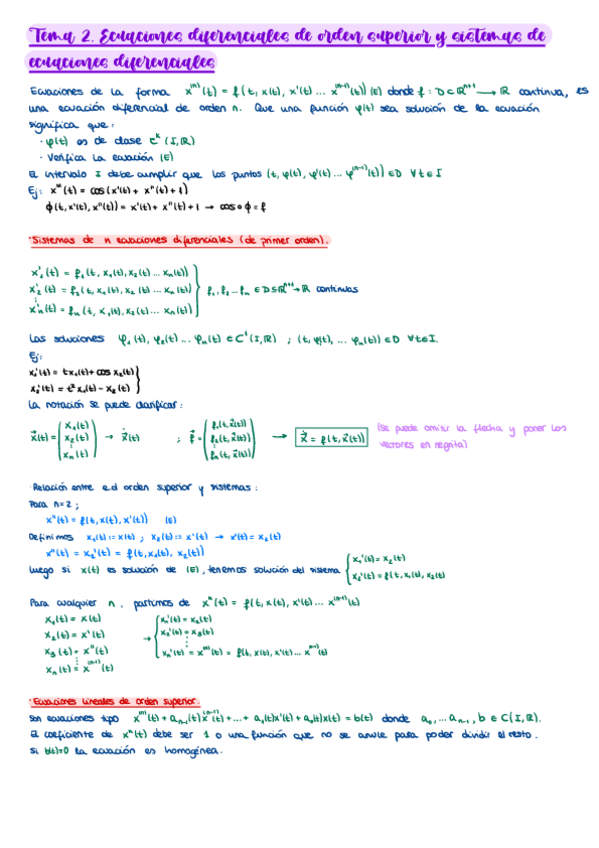 Tema 2. Ecuaciones diferenciales de orden superior y sistemas de
ecuaciones diferenciales
Ecuaciones de la forma x⁽ⁿ⁾(t) = f(t, x(t), x'(t) ... x⁽ⁿ⁻¹⁾(t)) (E) donde f: D⊂ℝⁿ⁺¹ → ℝ continua, es
una ecuación diferencial de orden n. Que una función φ(t) sea solución de la ecuación
significa que:
· φ(t) es de clase Cᵏ(I,ℝ)
· Verifica la ecuación (E)
El intervalo I debe cumplir que los puntos (t, φ(t), φ'(t) ... φ⁽ⁿ⁻¹⁾(t)) ∈ D ∀t∈I
Ej: x'''(t) = cos(x'(t) + x''(t) + 1)
ϕ(t, x'(t), x''(t)) = x'(t) + x''(t) + 1 → cos∘ϕ = f
·Sistemas de n ecuaciones diferenciales (de primer orden).
x₁'(t) = f₁(t, x₁(t), x₂(t) ... xₙ(t))
x₂'(t) = f₂(t, x₁(t), x₂(t) ... xₙ(t)) } f₁, f₂ ... fₙ ∈ D⊆ℝⁿ⁺¹→ℝ continuas
⋮
xₙ'(t) = fₙ(t, x₁(t), x₂(t) ... xₙ(t))
Las soluciones φ₁(t), φ₂(t) ... φₙ(t) ∈ C¹(I,ℝ) ; (t, φ₁(t), ... φₙ(t)) ∈ D ∀t∈I.
Ej:
x₁'(t) = tx₁(t) + cos x₂(t)
x₂'(t) = t²x₁(t) - x₂(t) }
La notación se puede clarificar:
x⃗(t) = (x₁(t) x₂(t) ⋮ xₙ(t)) → x⃗(t) ; f⃗ = (f₁(t, x⃗(t)) f₂(t, x⃗(t)) ⋮ fₙ(t, x⃗(t))) → x⃗ = f(t, x⃗(t)) (se puede omitir la flecha y poner los
vectores en negrita)
·Relación entre e.d orden superior y sistemas:
Para n=2;
x''(t) = f(t, x(t), x'(t)) (E)
Definimos x₁(t) := x(t) ; x₂(t) := x'(t) → x'(t) = x₂(t)
x''(t) = x₂'(t) = f(t, x₁(t), x₂(t))
Luego si x(t) es solución de (E), tenemos solución del sistema { x₁'(t) = x₂(t)
x₂'(t) = f(t, x₁(t), x₂(t)
Para cualquier n, partimos de xⁿ(t) = f(t, x(t), x'(t) ... x⁽ⁿ⁻¹⁾(t)
x₁(t) = x(t) { x₁'(t) = x₂(t)
x₂(t) = x'(t) → x₂'(t) = x₃(t)
x₃(t) = x''(t) ⋮
⋮ xₙ'(t) = x⁽ⁿ⁾(t) = f(t, x(t), x'(t) ... x⁽ⁿ⁻¹⁾(t)
xₙ(t) = x⁽ⁿ⁻¹⁾(t)
·Ecuaciones lineales de orden superior:
Son ecuaciones tipo x⁽ⁿ⁾(t) + aₙ₋₁(t)x⁽ⁿ⁻¹⁾(t) + ... + a₁(t)x'(t) + a₀(t)x(t) = b(t) donde a₀, ... aₙ₋₁, b ∈ C(I,ℝ).
El coeficiente de xⁿ(t) debe ser 1 o una función que no se anule para poder dividir el resto.
Si b(t)=0 la ecuación es homogénea.